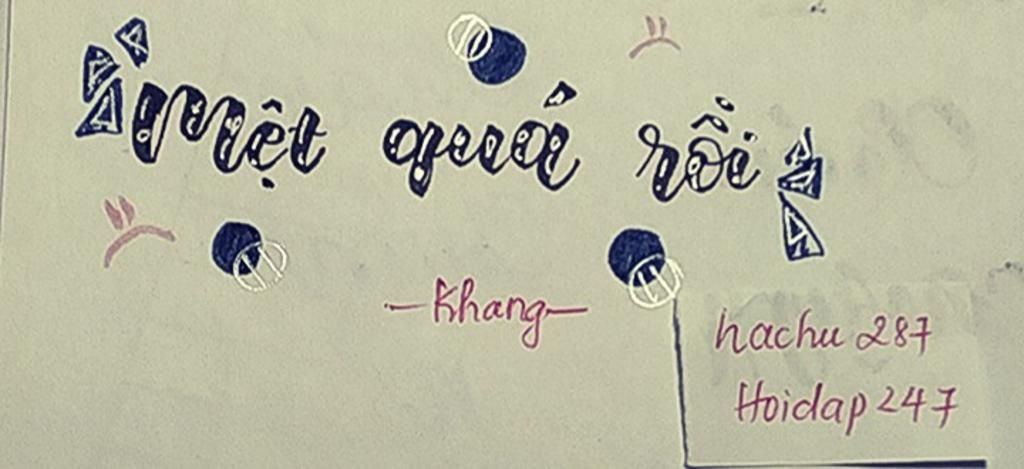 mệt quá rồi
-Khang-
hachu 287
Hoidap 247